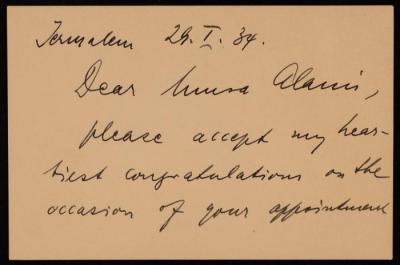 Jerusalem 29.I.34.
Dear Musa Alami,
please accept my hear-
tiest congratulations on the
occasion of your appointment